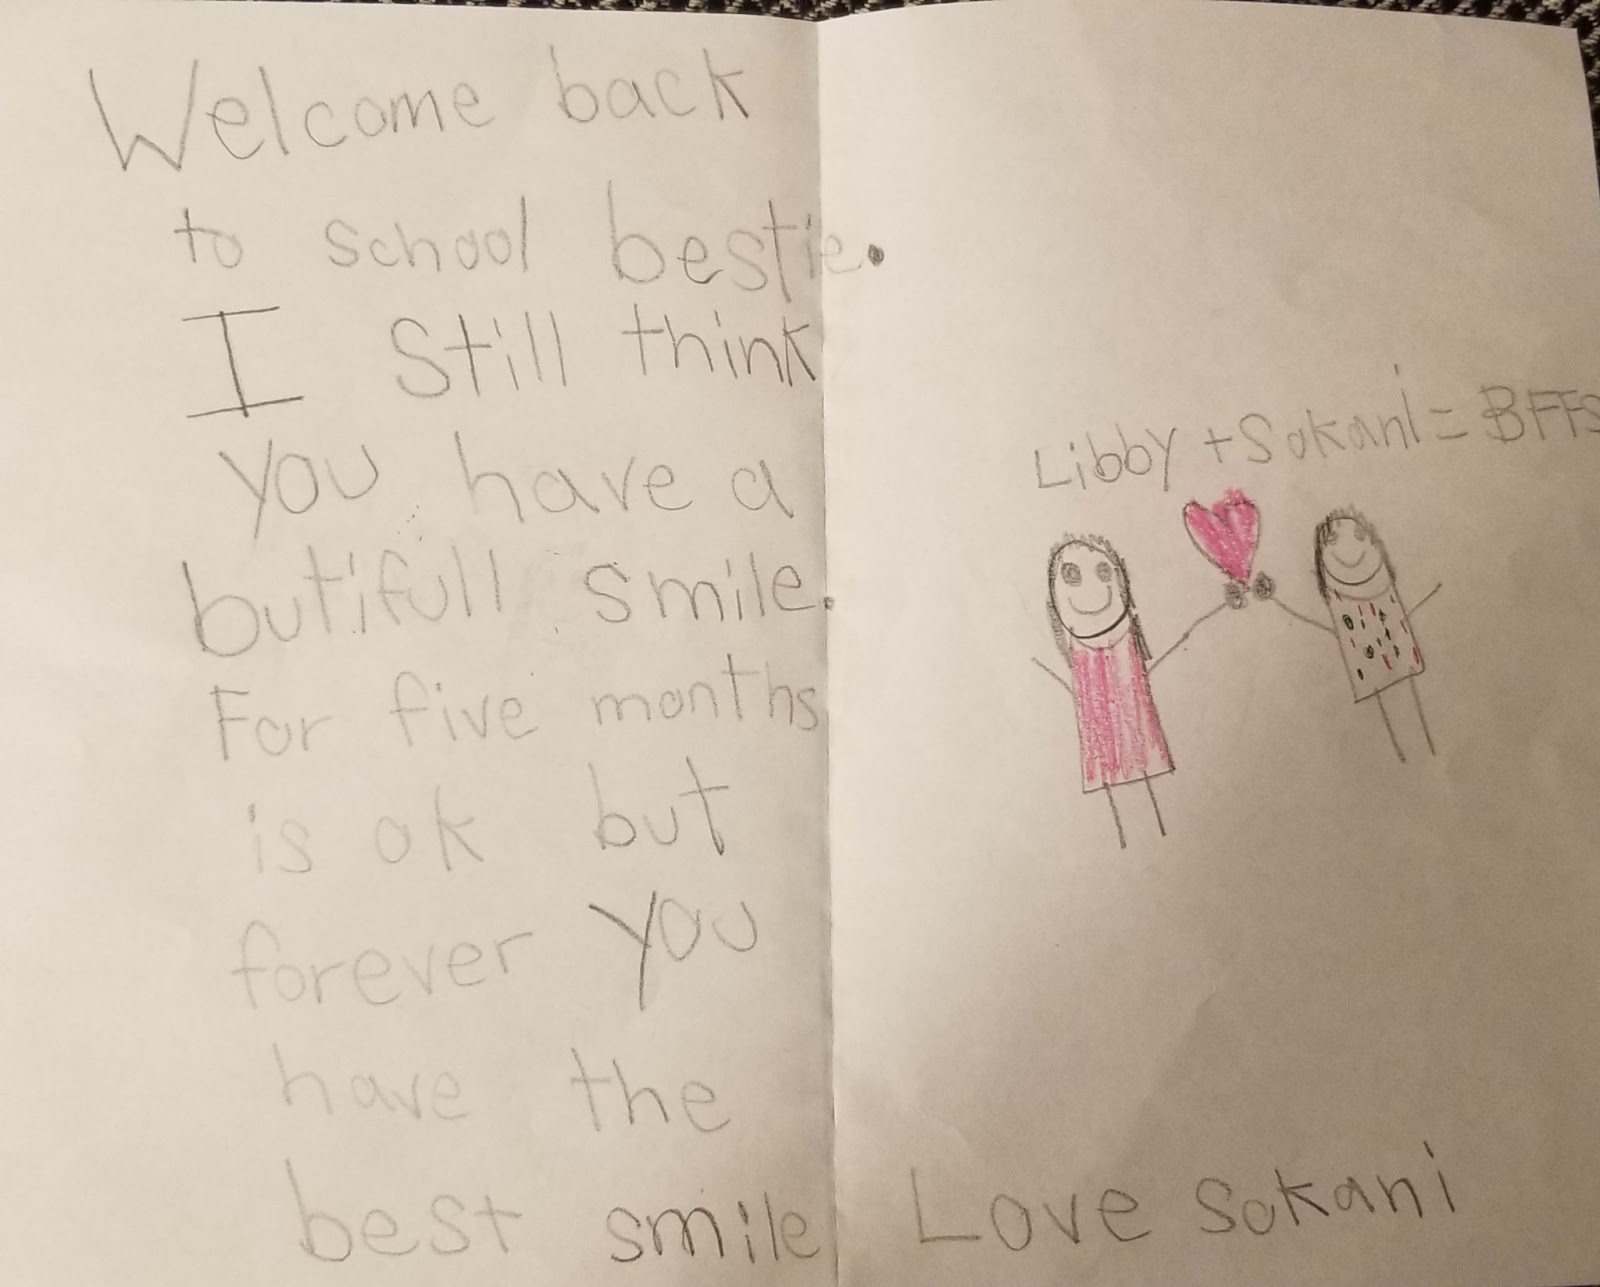 Welcome back
to school bestie.
I Still think
you have a
butifull smile.
For five months
is ok but
forever you
have the
best smile
Libby + Sokani = BFFS
Love Sokani